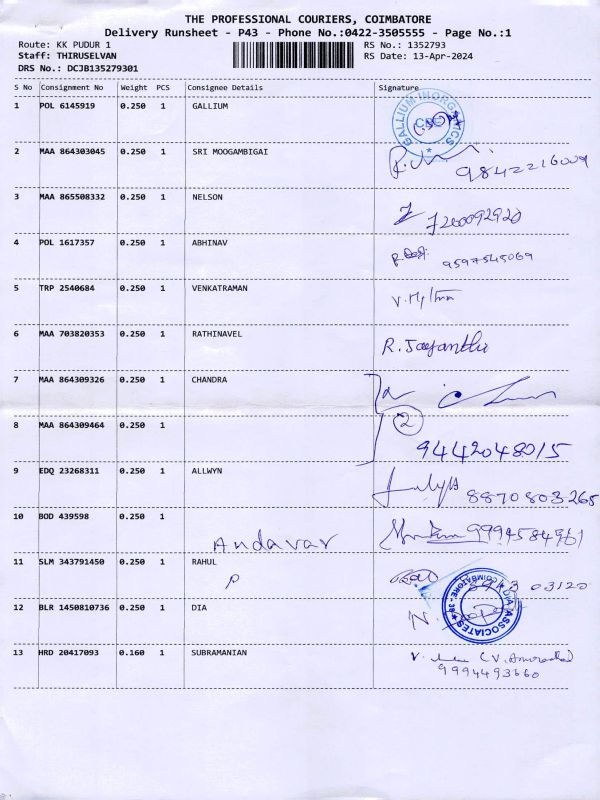 THE PROFESSIONAL COURIERS, COIMBATORE
Delivery Runsheet - P43 - Phone No.:0422-3505555 - Page No.:1
Route: KK PUDUR 1 RS No.: 1352793
Staff: THIRUSELVAN RS Date: 13-Apr-2024
DRS No.: DCJB135279301
S No Consignment No Weight PCS Consignee Details Signature
1 POL 6145919 0.250 1 GALLIUM GALLIUM INORGANICS CBE
2 MAA 864303045 0.250 1 SRI MOOGAMBIGAI 9842216009
3 MAA 865508332 0.250 1 NELSON 7200092920
4 POL 1617357 0.250 1 ABHINAV 9597545069
5 TRP 2540684 0.250 1 VENKATRAMAN
6 MAA 703820353 0.250 1 RATHINAVEL R. Jayanthi
7 MAA 864309326 0.250 1 CHANDRA
8 MAA 864309464 0.250 1 2 9442048015
9 EDQ 23268311 0.250 1 ALLWYN 8870803265
10 BOD 439598 0.250 1 Andavar 9994584961
11 SLM 343791450 0.250 1 RAHUL 03120
12 BLR 1450810736 0.250 1 DIA DIA ASSOCIATES COIMBATORE - 38
13 HRD 20417093 0.160 1 SUBRAMANIAN
9994493660